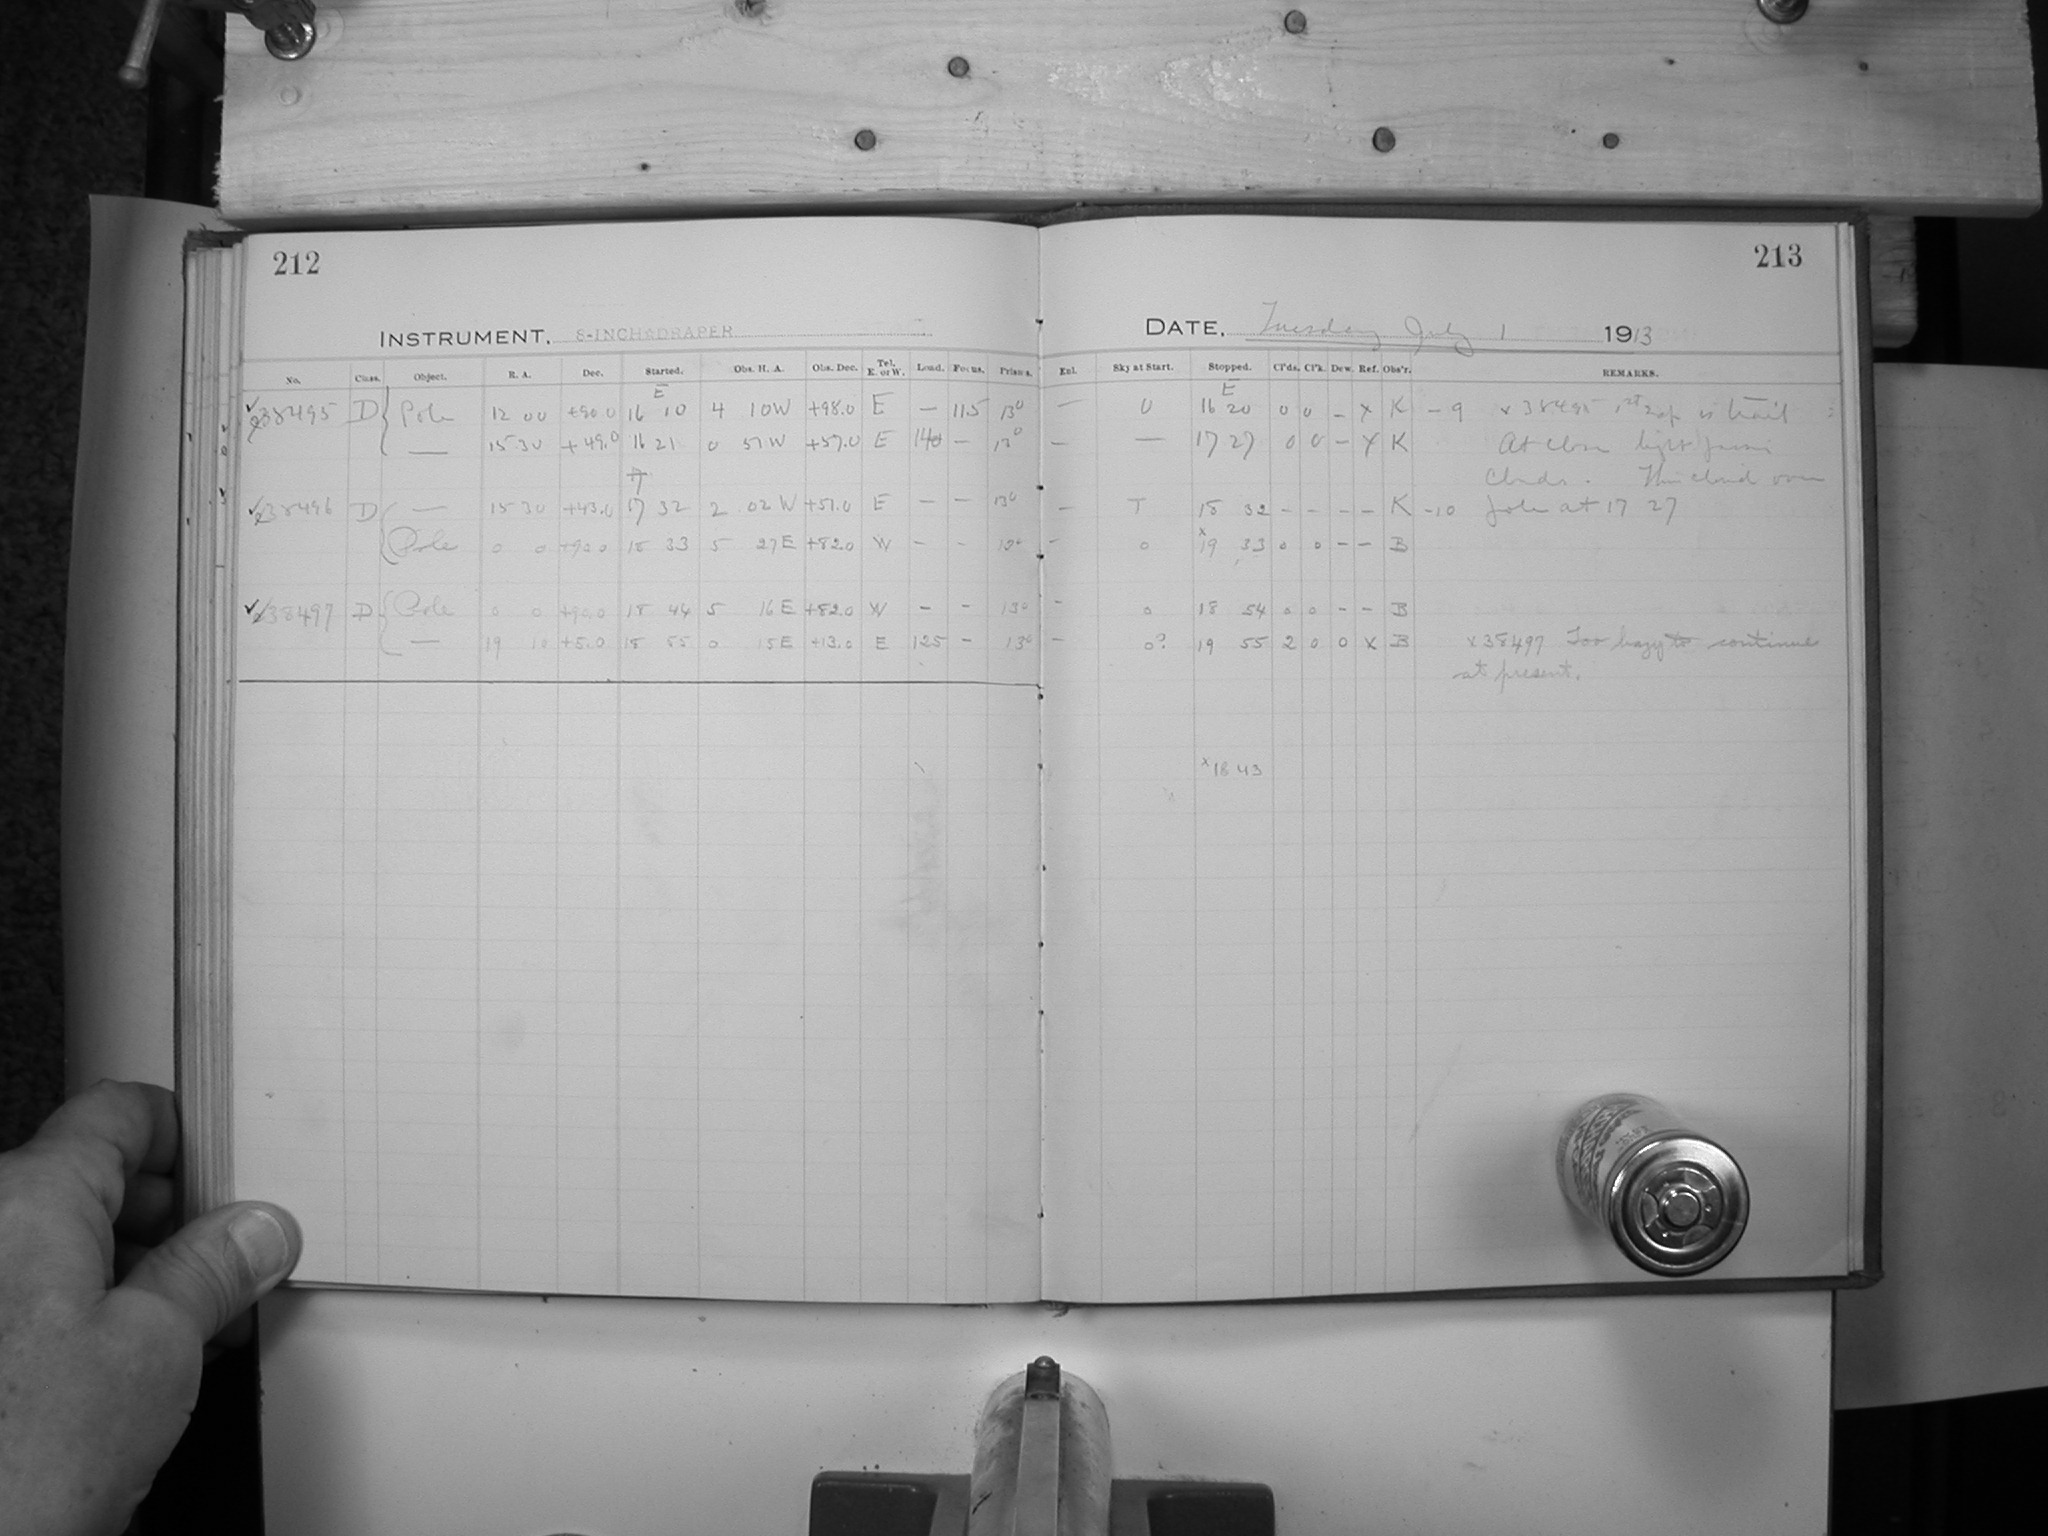 212
213
INSTRUMENT. 8-INCH DRAPER
DATE. Tuesday July 1 1913
No. Class. Object. R. A. Dec. Started. Obs. H. A. Obs. Dec. Tel. E. or W. Load. Focus. Prisms. Enl. Sky at Start. Stopped. Cl'ds. Cl'k. Dew. Ref. Obs'r. REMARKS.
E E
38495 D Pole 12 00 +90.0 16 10 4 10 W +98.0 E — 115 13° — 0 16 20 0 0 – x K – 9 x 38495 1st exp is trail
— 15 30 +49.0 16 21 0 51 W +57.0 E 140 – 13° — — 17 27 0 0 – x K At close light from
17 clouds. Thin cloud over
38496 D — 15 30 +43.0 17 32 2 02 W +51.0 E – – 13° – T 18 32 – – – – K –10 Pole at 17 27
Pole 0 0 +90.0 18 33 5 27 E +82.0 W – – 13° – 0 x19 33 0 0 – – B
38497 D Pole 0 0 +90.0 18 44 5 16 E +82.0 W – – 13° – 0 18 54 0 0 – – B
— 19 10 +5.0 18 55 0 15 E +13.0 E 125 – 13° – 0? 19 55 2 0 0 x B x38497 Too hazy to continue
at present.
x18 43